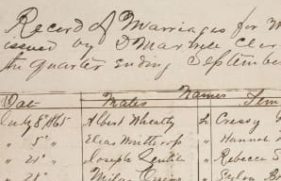 Record of Marriages for
issued by D Marble Cler
the quarter ending Septembe
Dat Males Names Fem
July 8, 1865 Albert Wheatly to Cressy
" 5" Elias Winthrop " Hannah
" 21" Joseph " Rebecca S
" 28" Milan "